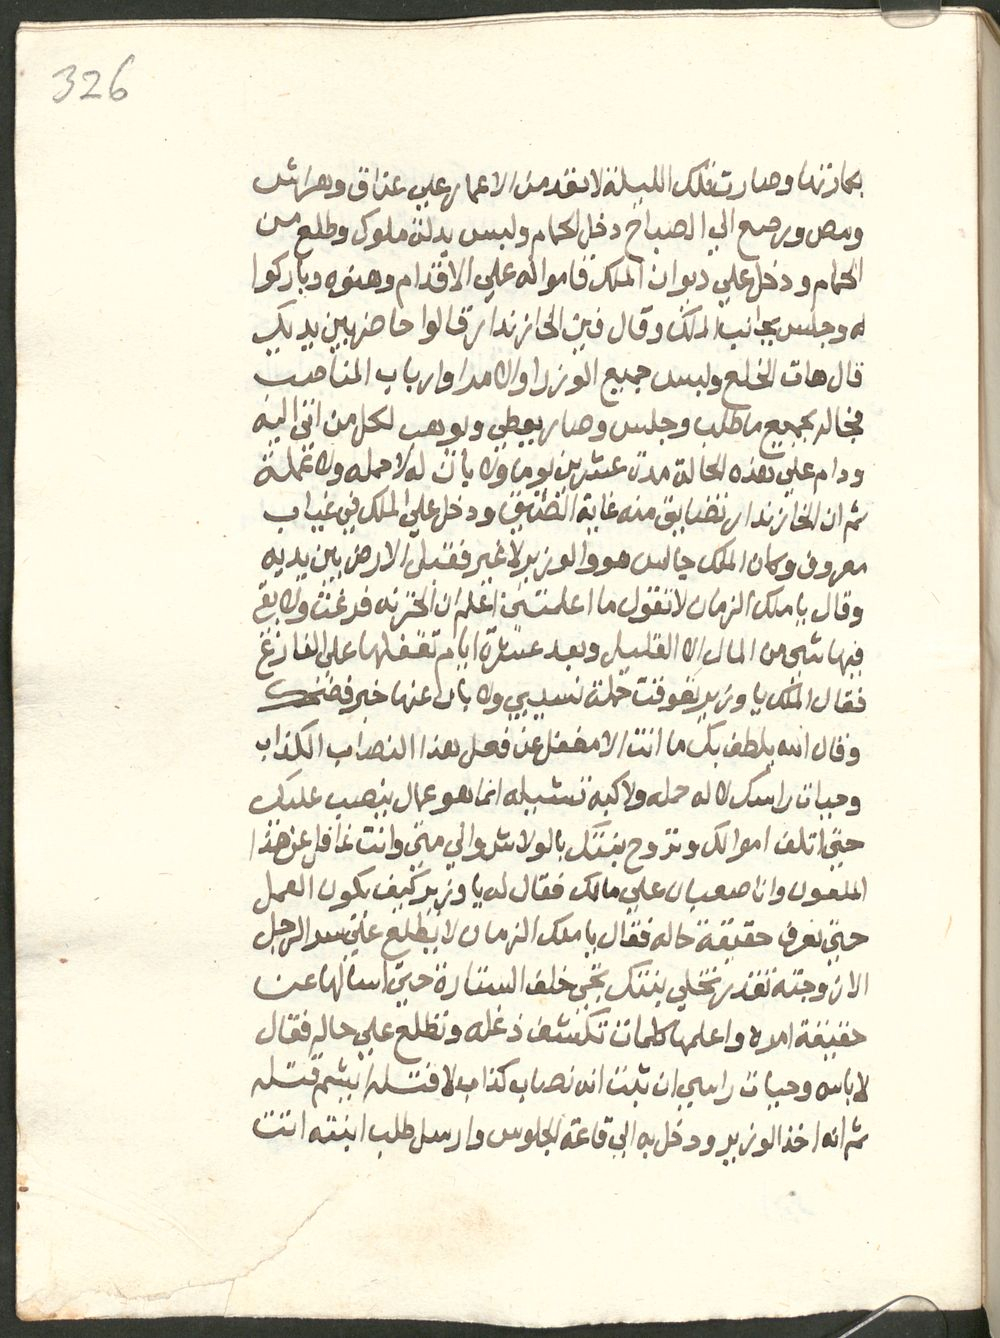 326
بكارتها وصارت تلك الليلة لا تقد من الاعمار علي عناق وهراش
ومص ورضع الي الصباح دخل الحمام ولبس بدلة ملوك وطلع من
الحمام ودخل علي ديوان الملك قاموا له علي الاقدام وهنوه وباركوا
له وجلس بجانب الملك وقال فين الخازندار قالوا حاضر بين يديك
قال هات الخلع ولبس جميع الوزرا والامرا وارباب المناصب
فجا له بجميع ما طلب وجلس وصار يعطي ويوهب لكل من اتى اليه
ودام علي هذه الحالة مدة عشرين يوما ولا بان له لا حمله ولا عملة
ثم ان الخازندار تضايق منه غاية الضيق ودخل علي الملك في غياب
معروف وكان الملك جالس هو والوزير لا غير فقبل الارض بين يديه
وقال يا ملك الزمان لا تقول ما اعلمتني اعلم ان الخزنه فرغت ولا بقي
فيها شي من المال الا القليل وبعد عشرة ايام نقفلها علي الفارغ
فقال الملك يا وزير تعوقت حملة نسيبي ولا بان عنها خبر فضحك
وقال الله يلطف بك ما انت الا مغفل عن فعل هذا النصاب الكذاب
وحيات راسك لا له حمله ولا كبه تشيله انما هو عمال ينصب عليك
حتي اتلف اموالك وتزوج بنتك بالولاش والي متي وانت غافل عن هذا
الملعون وانا صعبان علي مالك فقال له يا وزير كيف يكون العمل
حتي نعرف حقيقة حاله فقال يا ملك الزمان لا يطلع علي سر الرجل
الا زوجته تقدر تخلي بنتك تجي خلف الستارة حتي اسالها عن
حقيقة امره واعلمها كلمات تكشف زغله وتطلع علي حاله فقال
لا باس وحيات راسي ان ثبت انه نصاب كذاب لاقتله ابشم قتله
ثم انه اخذ الوزير ودخل به الي قاعة الجلوس وارسل طلب ابنته اتت